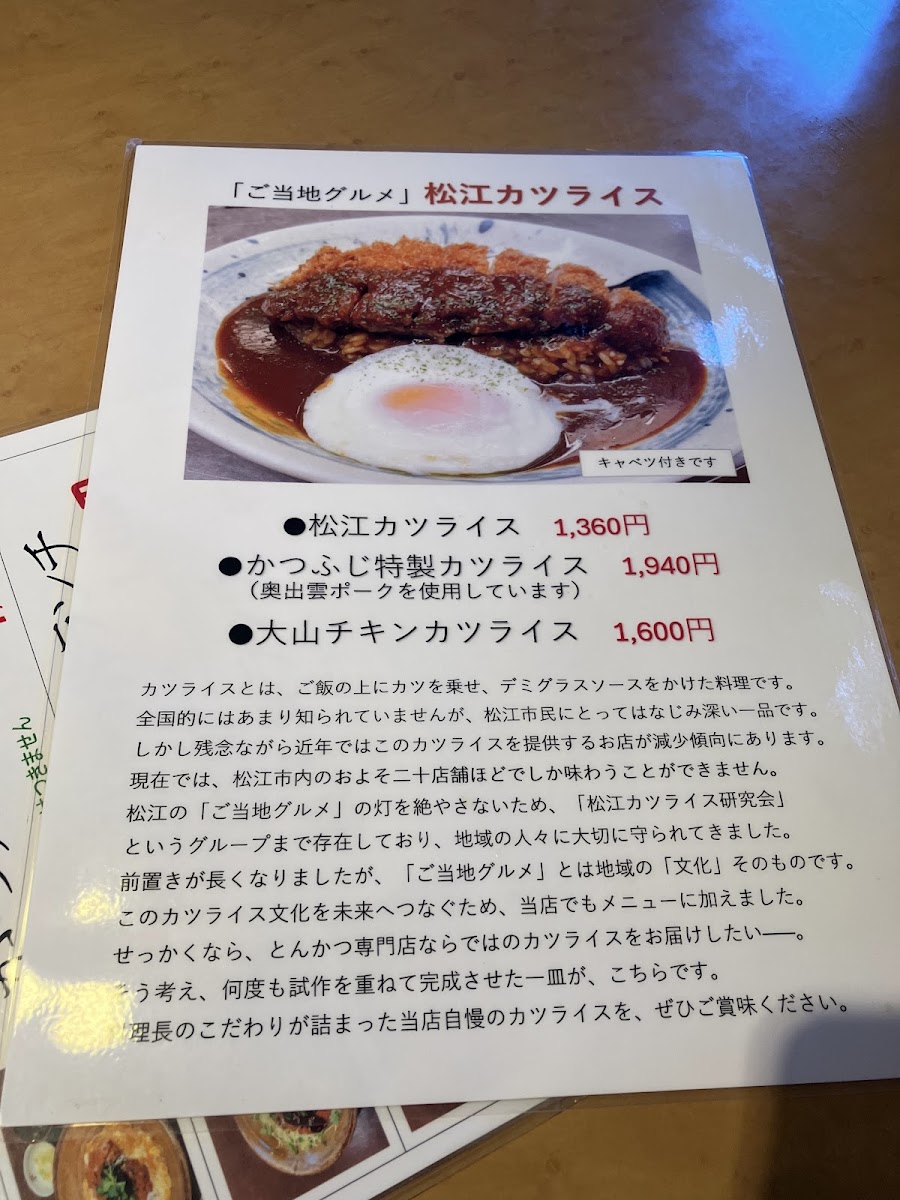 「ご当地グルメ」松江カツライス
キャベツ付きです
●松江カツライス 1,360円
●かつふじ特製カツライス 1,940円
（奥出雲ポークを使用しています）
●大山チキンカツライス 1,600円
カツライスとは、ご飯の上にカツを乗せ、デミグラスソースをかけた料理です。
全国的にはあまり知られていませんが、松江市民にとってはなじみ深い一品です。
しかし残念ながら近年ではこのカツライスを提供するお店が減少傾向にあります。
現在では、松江市内のおよそ二十店舗ほどでしか味わうことができません。
松江の「ご当地グルメ」の灯を絶やさないため、「松江カツライス研究会」
というグループまで存在しており、地域の人々に大切に守られてきました。
前置きが長くなりましたが、「ご当地グルメ」とは地域の「文化」そのものです。
このカツライス文化を未来へつなぐため、当店でもメニューに加えました。
せっかくなら、とんかつ専門店ならではのカツライスをお届けしたい――。
そう考え、何度も試作を重ねて完成させた一皿が、こちらです。
理長のこだわりが詰まった当店自慢のカツライスを、ぜひご賞味ください。
ランチ